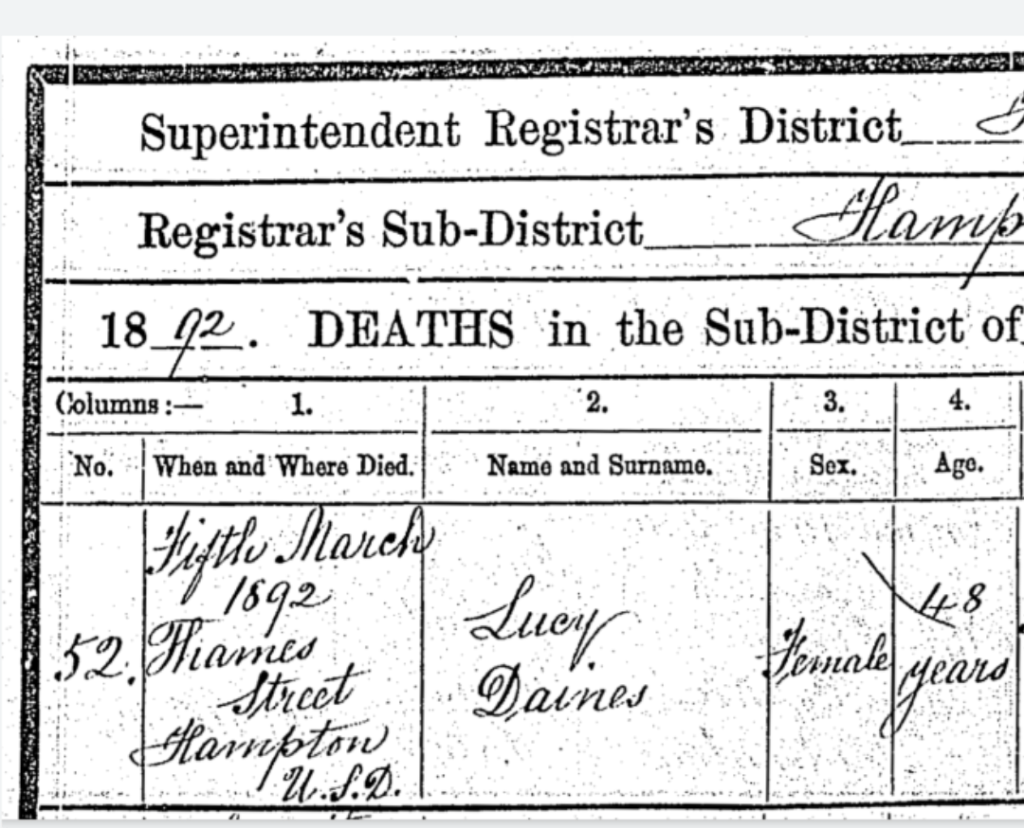 Superintendent Registrar's District
Registrar's Sub-District Hamp
1892. DEATHS in the Sub-District of
Columns:— 1. 2. 3. 4.
No. When and Where Died. Name and Surname. Sex. Age.
52. Fifth March 1892 Thames Street Hampton U.S.D. Lucy Daines Female 48 years